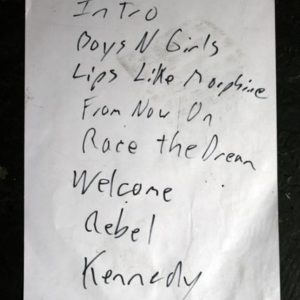 Intro
Boys N Girls
Lips Like Morphine
From Now On
Race the Dream
Welcome
Rebel
Kennedy